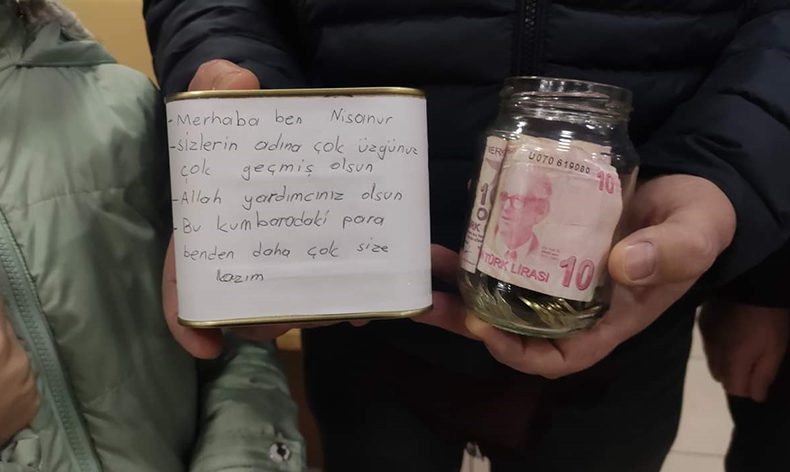 - Merhaba ben Nisanur
- sizlerin adına çok üzgünüz
çok geçmiş olsun
- Allah yardımcınız olsun
- Bu kumbaradaki para
benden daha çok size
lazım
U070 619080
10
TÜRK LİRASI 10